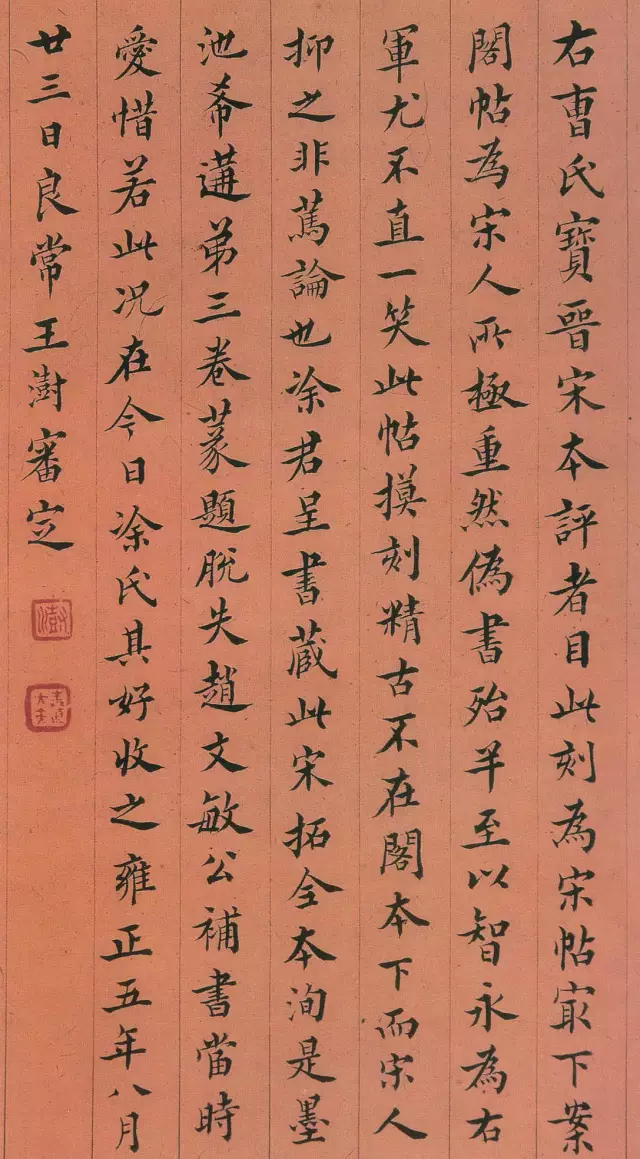 右曹氏寶晉宋本評者目此刻為宋帖㝡下案
閣帖為宋人所極重然偽書殆半至以智永為右
軍尤不直一笑此帖摸刻精古不在閣本下而宋人
抑之非篤論也涂君呈書蔵此宋拓全本洵是墨
池希遘弟三卷篆題脫失趙文敏公補書當時
愛惜若此况在今日涂氏其好收之雍正五年八月
廿三日良常王澍審定
澍